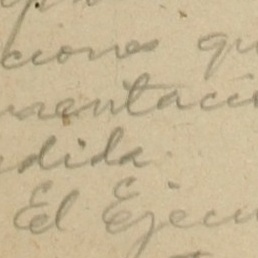 ciones qu
mentaci
dida.
El Ejecu